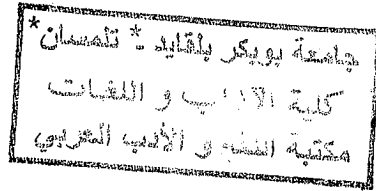 *جامعة بوبكر بلقايد * تلمسان*
كلية الآداب و اللغات
مكتبة اللغة و الأدب العربي